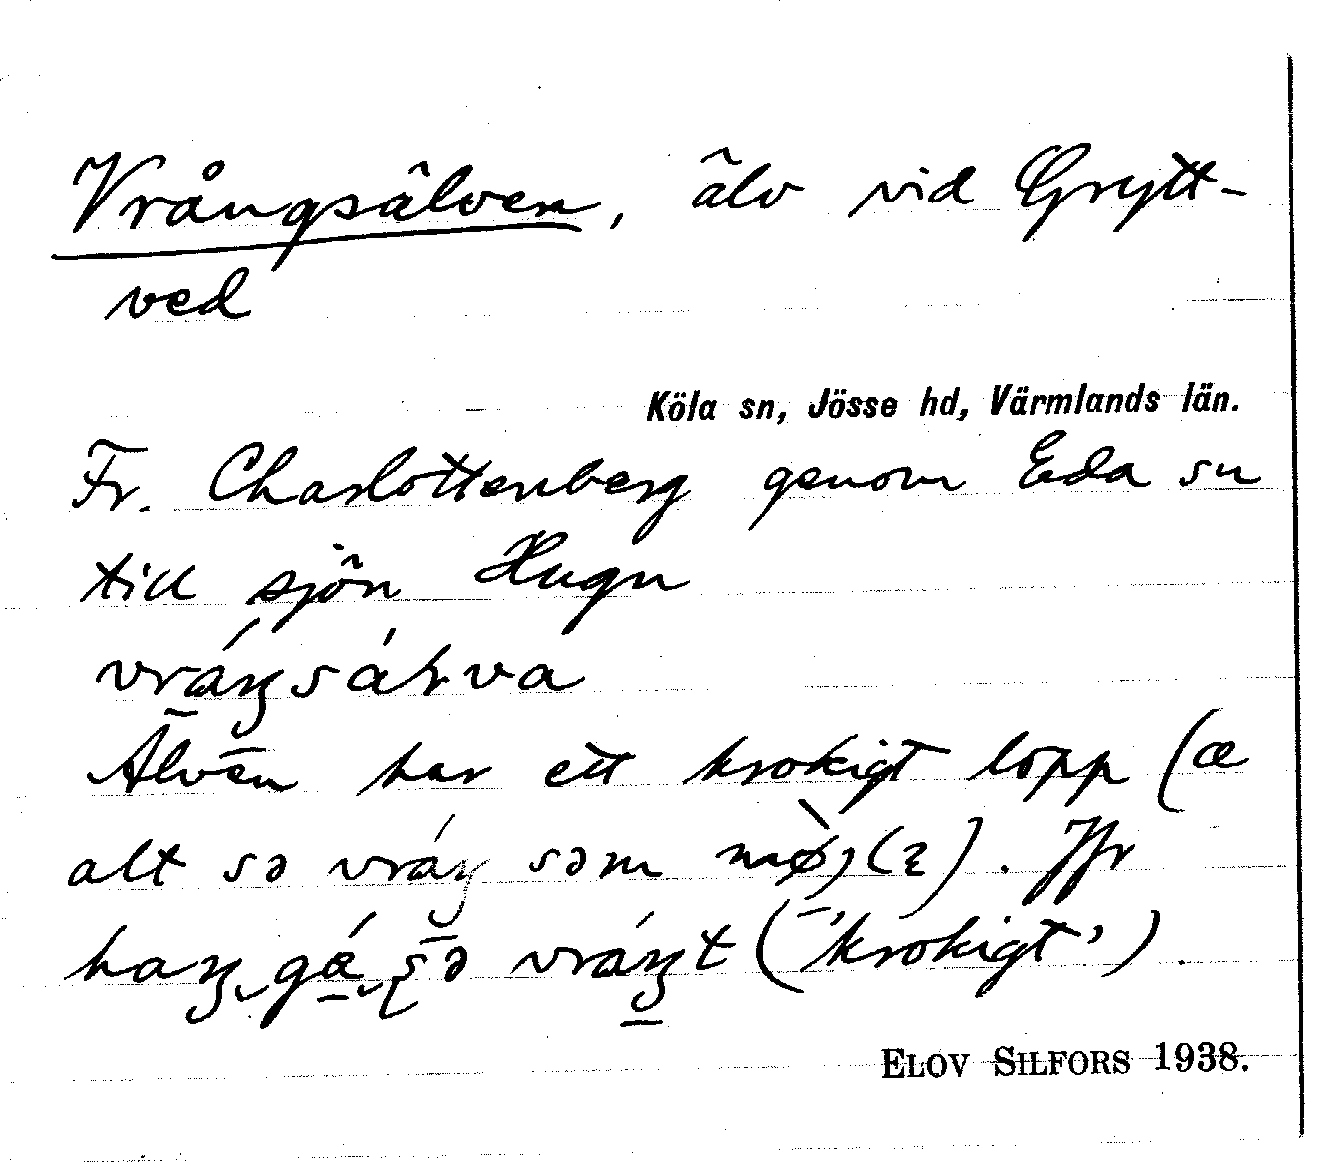 Vrångsälven, älv vid Grytt-
ved
Köla sn, Jösse hd, Värmlands län.
Fr. Charlottenberg genom Eda sn
till sjön Hugn
Älven har ett krokigt lopp (æ
alt sə vráŋ som . Jfr
sə vráŋt ('krokigt').
ELOV SILFORS 1938.